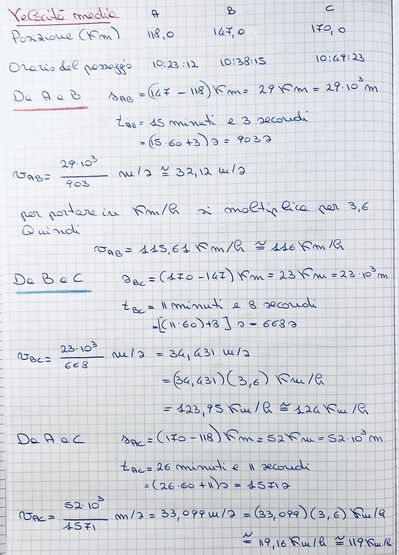 Velocità media A B C
Posizione (Km) 118,0 147,0 170,0
Orario del passaggio 10:23:12 10:38:15 10:49:23
Da A a B s_AB = (147 - 118) Km = 29 Km = 29·10³ m
t_AB = 15 minuti e 3 secondi
= (15·60+3) s = 903 s
v_AB = 29·10³/903 m/s ≅ 32,12 m/s
per portare in Km/h si moltiplica per 3,6
Quindi
v_AB = 115,61 Km/h ≅ 116 Km/h
Da B a C s_BC = (170 - 147) Km = 23 Km = 23·10³ m
t_BC = 11 minuti e 8 secondi
= [(11·60)+8] s = 668 s
v_BC = 23·10³/668 m/s = 34,431 m/s
= (34,431)(3,6) Km/h
= 123,95 Km/h ≅ 124 Km/h
Da A a C s_AC = (170 - 118) Km = 52 Km = 52·10³ m
t_AC = 26 minuti e 11 secondi
= (26·60+11) s = 1571 s
v_AC = 52·10³/1571 m/s = 33,099 m/s = (33,099)(3,6) Km/h
≅ 119,16 Km/h ≅ 119 Km/h